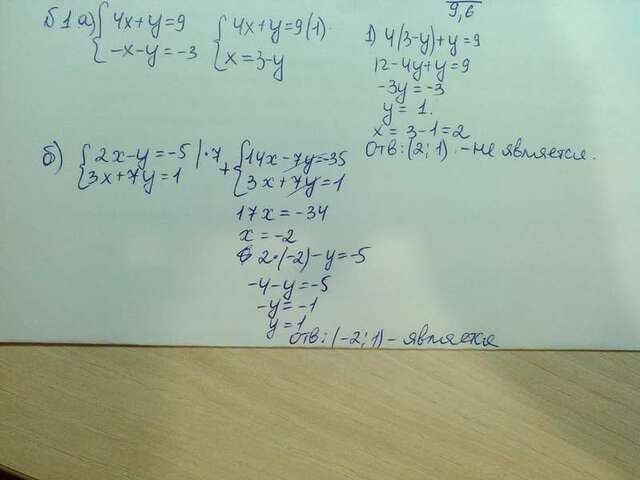 9,6
Б1.а) { 4x+y=9
-x-y=-3
{ 4x+y=9 (1)
x=3-y
1) 4(3-y)+y=9
12-4y+y=9
-3y=-3
y=1.
x=3-1=2
Отв: (2; 1). - не является.
б) { 2x-y=-5 |·7
3x+7y=1
+ { 14x-7y=-35
3x+7y=1
17x=-34
x=-2
2·(-2)-y=-5
-4-y=-5
-y=-1
y=1
Отв: (-2; 1) - является